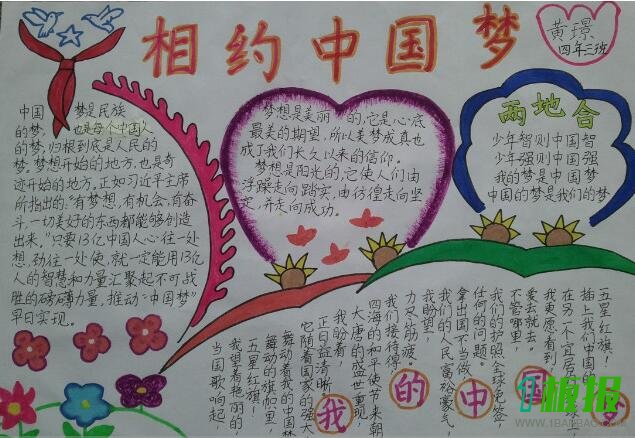 相约中国梦
黄璟
四年三班
中国梦是民族
的梦,也是每个中国人
的梦,归根到底是人民的
梦。梦想开始的地方,也是奇
迹开始的地方,正如习近平主席
所指出的,"有梦想,有机会,有奋
斗,一切美好的东西都能够创造
出来,"只要13亿中国人心往一处
想,劲往一处使,就一定能用13亿
人的智慧和力量汇聚起不可战
胜的磅礴力量,推动"中国梦"
早日实现。
梦想是美丽的,它是心底
最美的期望,所以美梦成真也
成了我们长久以来的信仰。
梦想是阳光的,它使人们由
浮躁走向踏实,由彷徨走向坚
定,并走向成功。
两地合
少年智则中国智
少年强则中国强
我的梦是中国梦
中国的梦是我们的梦
当国歌响起,
我望着艳丽的
五星红旗!
舞动的旗帜里,
舞动着我的中国梦
它随着国家的强大
正日益清晰。
我盼着,
大唐的盛世重现,
四海的和平使节来朝
我们接待得
力尽筋疲。
我盼望,
我们的人民富裕豪气,
拿出国不当做
任何的问题。
我们的护照全球免签,
不管哪里,
爱去就去。
我更愿看到,
在另一个宜居的星球上
插上我们中国的
五星红旗!
我的中国梦
1板报
WWW.1BANBAO.COM